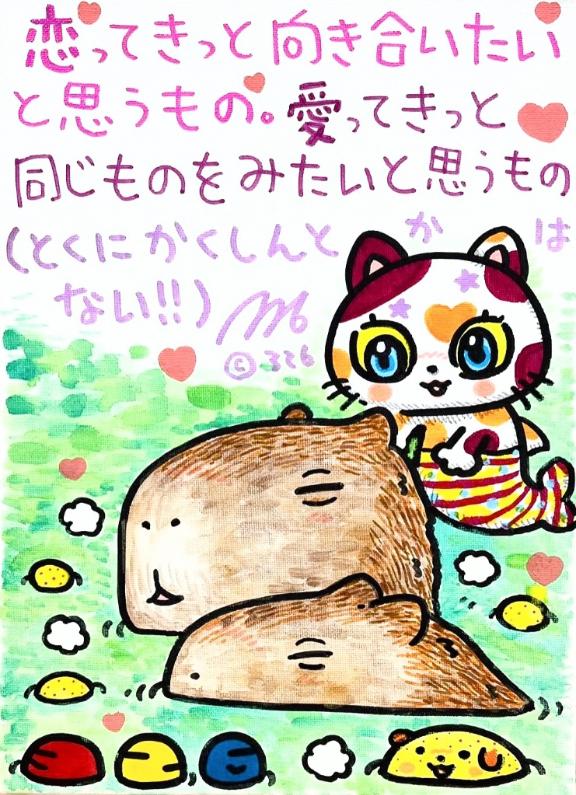 恋ってきっと向き合いたい
と思うもの。愛ってきっと
同じものをみたいと思うもの
(とくにかくしんとかは
ない!!)
©326